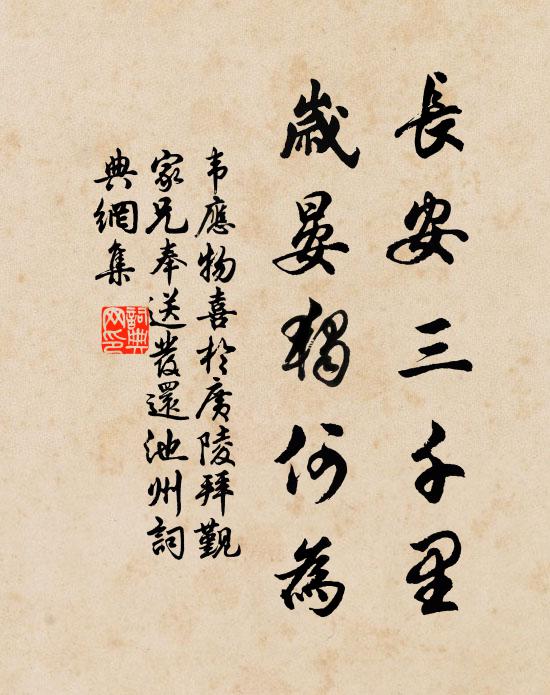 長安三千里
歲晏獨何為
韦應物喜於廣陵拜覲
家兄奉送發還池州詞
典網集
詞典网印